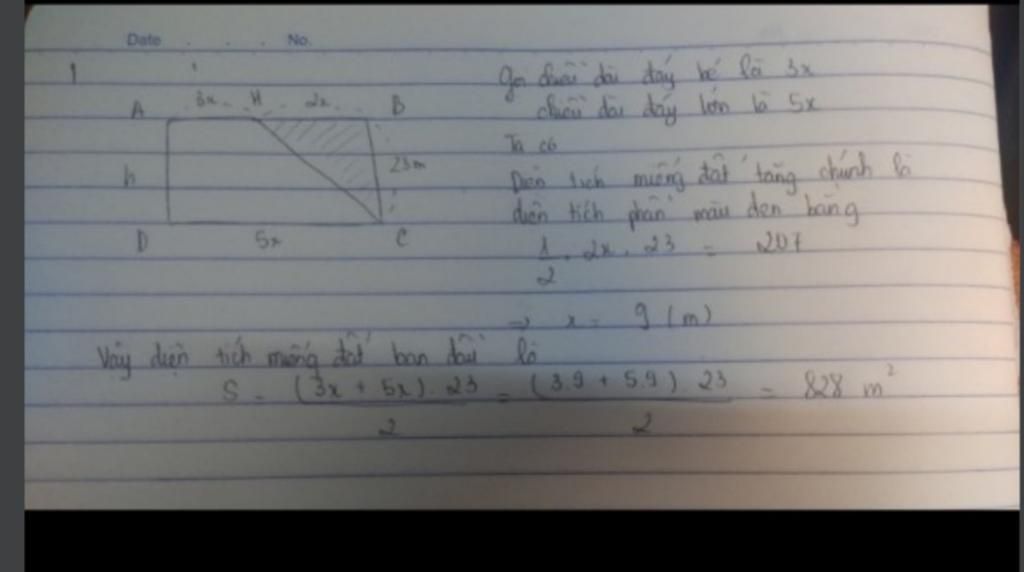 Date No.
1
A 3x H 2x B
Gọi chiều dài đáy bé là 3x
chiều dài đáy lớn là 5x
h 23m
Ta có
Diện tích miếng đất tăng chính là
diện tích phần màu đen bằng
D 5x C
1/2 . 2x . 23 = 207
=> x = 9 (m)
Vậy diện tích miếng đất ban đầu là
S = (3x + 5x) . 23 / 2 = (3.9 + 5.9) . 23 / 2 = 828 m²